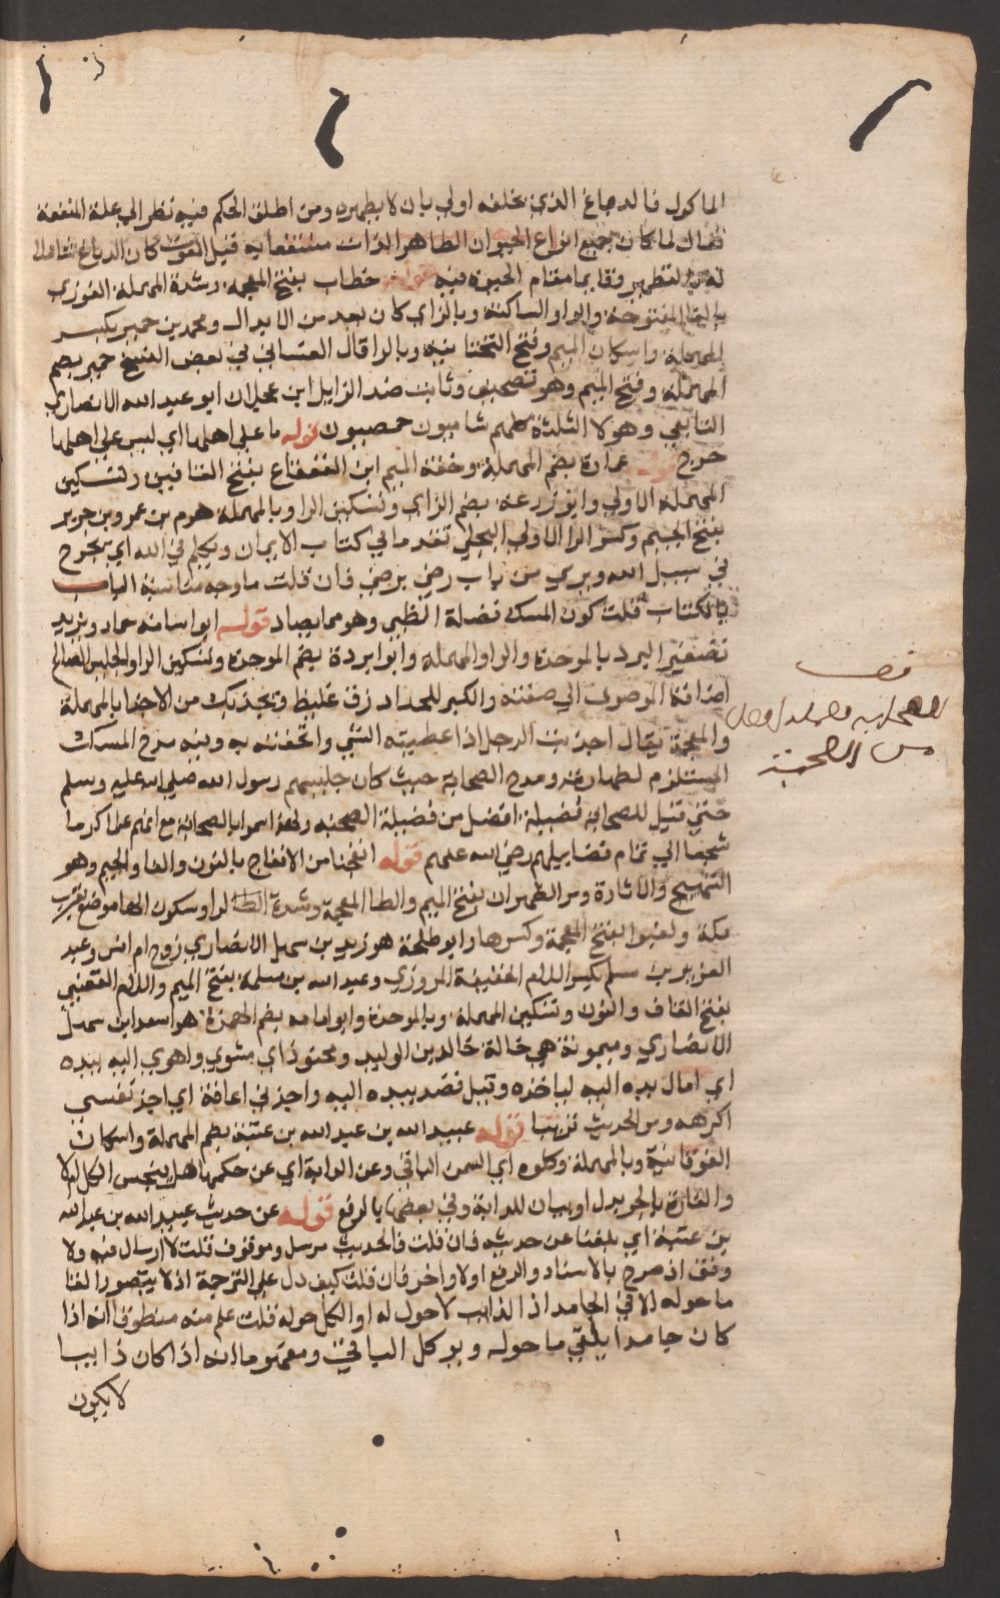 الماكول فالدباغ الذي يخلفه اولي بان لا يطهره ومن اطلق الحكم فيه نظر الي علة المنفعة
فقال لما كان جميع انواع الحيوان الطاهر الذات منتفعا به قبل الموت كان الدباغ شاملا
له في التطهير وقايما مقام الحيوة فيه قوله خطاب بفتح المعجمة وشدة المهملة الفوزي
بالفا المفتوحة والواو الساكنة وبالزاي كان يعد من الابدال ومحمد بن حمير بكسر
المهملة واسكان الميم وفتح التحتانية وبالرا قال الغساني في بعض النسخ حمير بضم
المهملة وفتح الميم وهو تصحيف وثابت ضد الزايل ابن عجلان ابو عبد الله الانصاري
التابعي وهولا الثلثة كلهم شاميون حمصيون قوله ما علي اهلها اي ليس علي اهلها
حرج قوله عمارة بضم المهملة وخفة الميم ابن القعقاع بفتح القافين وتسكين
المهملة الاولي وابو زرعة بضم الزاي وتسكين الرا وبالمهملة هرم بن عمرو بن جرير
بفتح الجيم وكسر الرا الاولي البجلي تقدما في كتاب الايمان ويكلم في الله اي يجرح
في سبيل الله ويدمي من باب رضي يرضي فان قلت ما وجه مناسبة الباب
بالكتاب قلت كون المسك فضلة الظبي وهو مما يصاد قوله ابو اسامة حماد وبريد
تصغير البرد بالموحدة والرا والمهملة وابو بردة بضم الموحدة وتسكين الرا والجليس الصالح
اضافة الموصوف الي صفته والكير للحداد زق غليظ ويحذيك من الاحذا بالمهملة
والمعجمة يقال احذيت الرجل اذا اعطيته الشي واتحفته به وفيه مدح المسك
المستلزم لطهارته ومدح الصحابة حيث كان جليسهم رسول الله صلي الله عليه وسلم
حتي قيل للصحابة فضيلة افضل من فضيلة الصحبة ولهذا سموا بالصحابة مع انهم علما كرما
شجعا الي تمام فضايلهم رضي الله عنهم قوله انفجنا من الانفاج بالنون والفا والجيم وهو
التهييج والاثارة ومر الظهران بفتح الميم والظا المعجمة وشدة الرا وسكون الها موضع بقرب
مكة ولغبوا بفتح المعجمة وكسرها وابو طلحة هو زيد بن سهل الانصاري زوج ام انس وعبد
العزيز بن مسلم بكسر اللام الخفيفة المروزي وعبد الله بن مسلمة بفتح الميم واللام القعنبي
بفتح القاف والنون وتسكين المهملة وبالموحدة وابو امامة بضم الهمزة هو اسعد ابن سهل
الانصاري وميمونة هي خالة خالد بن الوليد ومحنوذ اي مشوي واهوي اليه بيده
اي امال يده اليه لياخذه وقيل قصد بيده اليه واجدني اعافه اي اجد نفسي
اكرهه ومر الحديث قريبا قوله عبيد الله بن عبد الله بن عتبة بضم المهملة واسكان
الفوقانية وبالمهملة وكلوه اي السمن الباقي وعن الدابة اي عن حكمها هل ينجس الكل ام لا
والفارة بالجر بدل او بيان للدابة وفي بعضها بالرفع قوله عن حديث عبيد الله بن عبد الله
بن عتبة اي بلغنا عن حديثه فان قلت فالحديث مرسل وموقوف قلت لا ارسال فيه ولا
وقف اذ صرح بالاسناد والرفع اولا واخر فان قلت كيف دل علي الترجمة اذ لا يتصور القا
ما حوله الا في الجامد اذ الذايب لا حول له او الكل حوله قلت علم منه منطوقا انه اذا
كان جامدا يلقي ما حوله ويوكل الباقي ومفهوما انه اذا كان ذايبا
لا يكون
قف
للصحابه فضيله افضل
من الصحبة